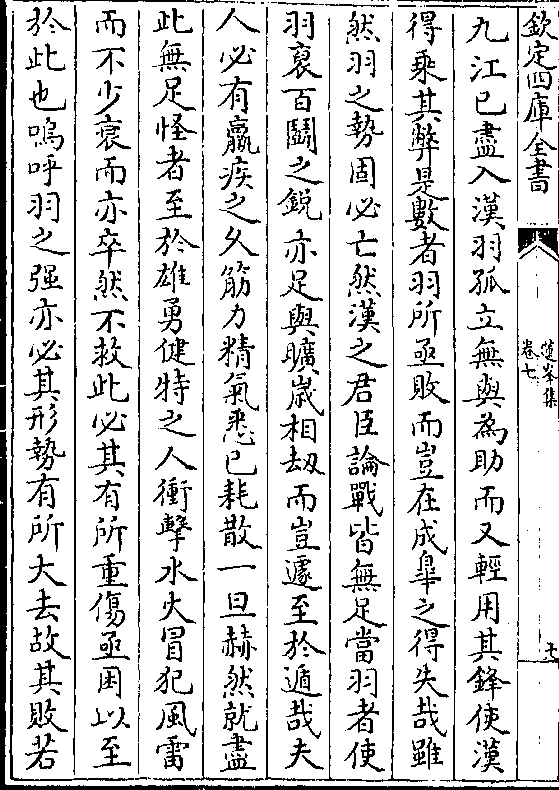 欽定四庫全書
卷七
九江已盡入漢羽孤立無與為助而又輕用其鋒使漢
得乘其弊是數者羽所亟敗而豈在成臯之得失哉雖
然羽之勢固必亡然漢之君臣論戰皆無足當羽者使
羽裒百鬬之鋭亦足與曠歳相刼而豈遽至於遁哉夫
人必有羸疾之久筋力精氣悉已耗散一旦赫然就盡
此無足怪者至於雄勇健特之人衝擊水火冒犯風雷
而不少衰而亦卒然不救此必其有所重傷亟困以至
於此也嗚呼羽之强亦必其形勢有所大去故其敗若